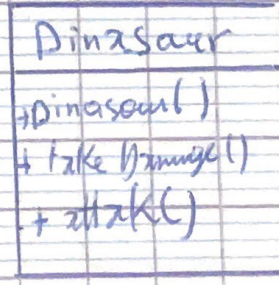 Dinasaur
+Dinasaur()
+ take Damage()
+ attak()